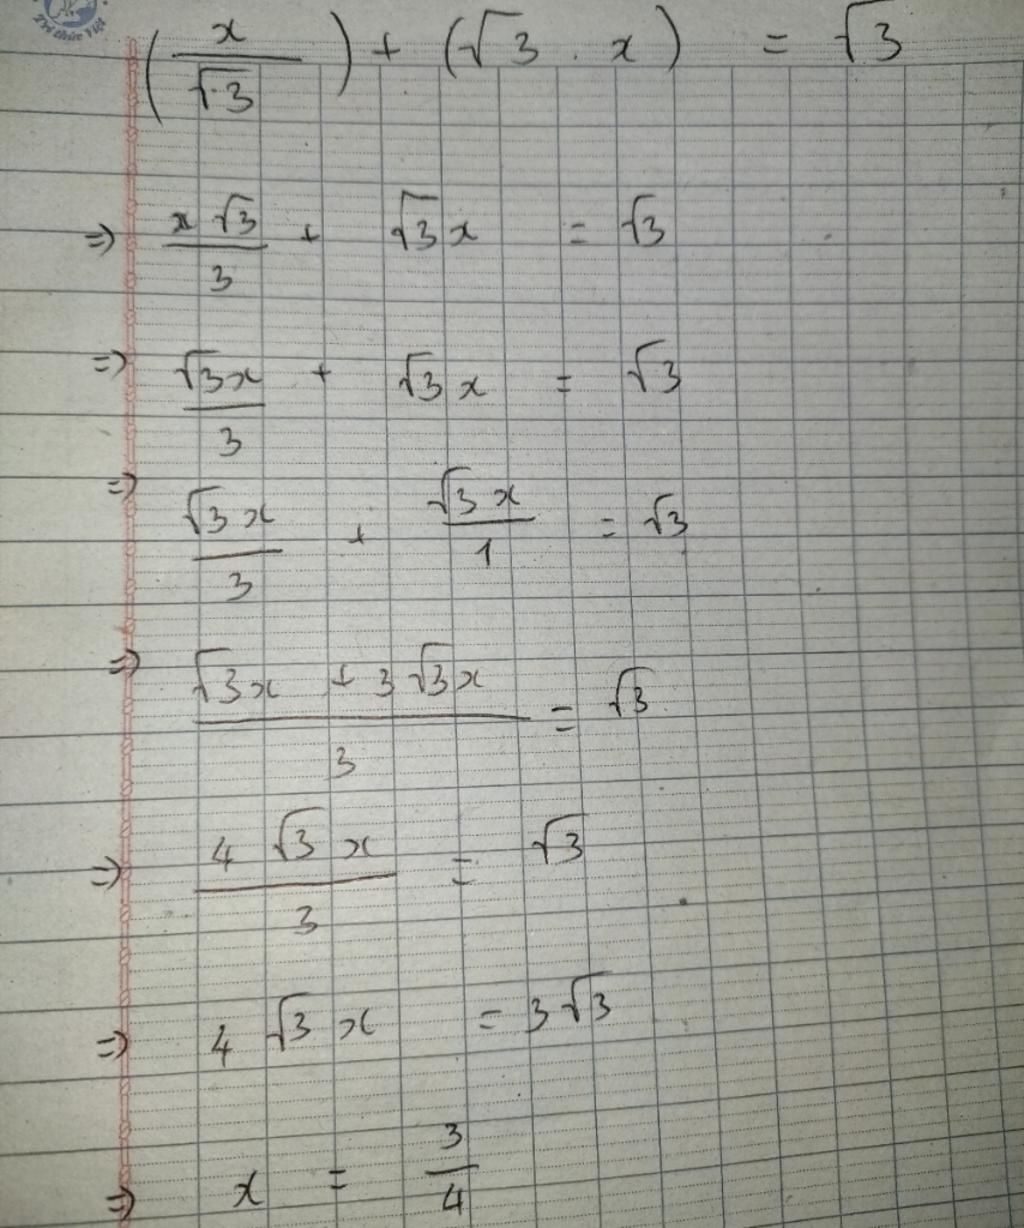 Trí thức Việt
(x/√3) + (√3 . x) = √3
=> x√3/3 + √3x = √3
=> √3x/3 + √3x = √3
=> √3x/3 + √3x/1 = √3
=> (√3x + 3√3x)/3 = √3
=> 4√3x/3 = √3
=> 4√3x = 3√3
=> x = 3/4